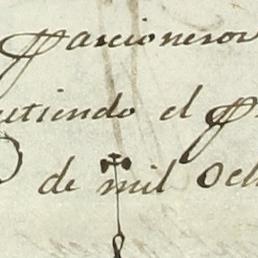 parcioneros
etiendo el
de mil Och